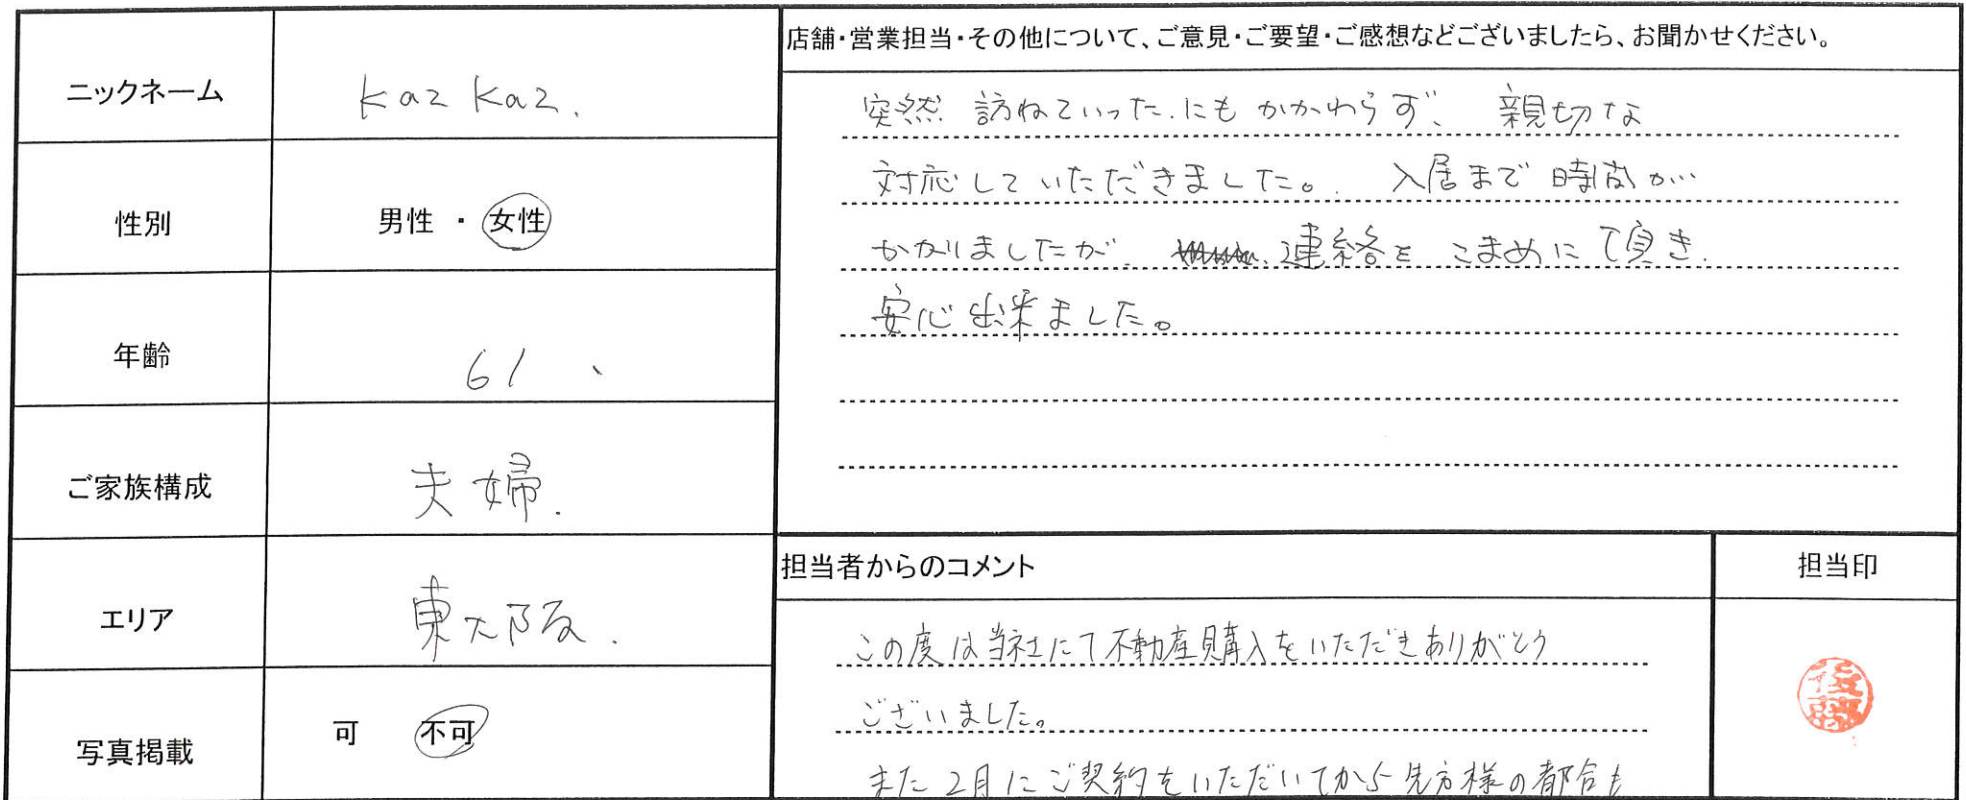 ニックネーム
kaz kaz.
性別
男性 ・ 女性
年齢
61
ご家族構成
夫婦.
エリア
東大阪.
写真掲載
可 不可
店舗・営業担当・その他について、ご意見・ご要望・ご感想などございましたら、お聞かせください。
突然 訪ねていったにもかかわらず、親切な
対応していただきました。入居まで時間が
かかりましたが、連絡を こまめに頂き
安心出来ました。
担当者からのコメント
この度は当社にて不動産購入をいただきありがとう
ございました。
また2月にご契約をいただいてから先方様の都合も
担当印